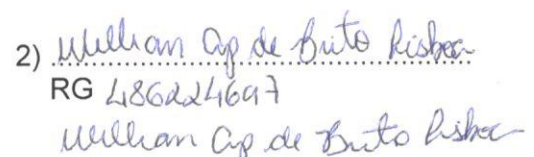 2) Willian Ap de Brito Lisboa
RG 486224697
Willian Ap de Brito Lisboa